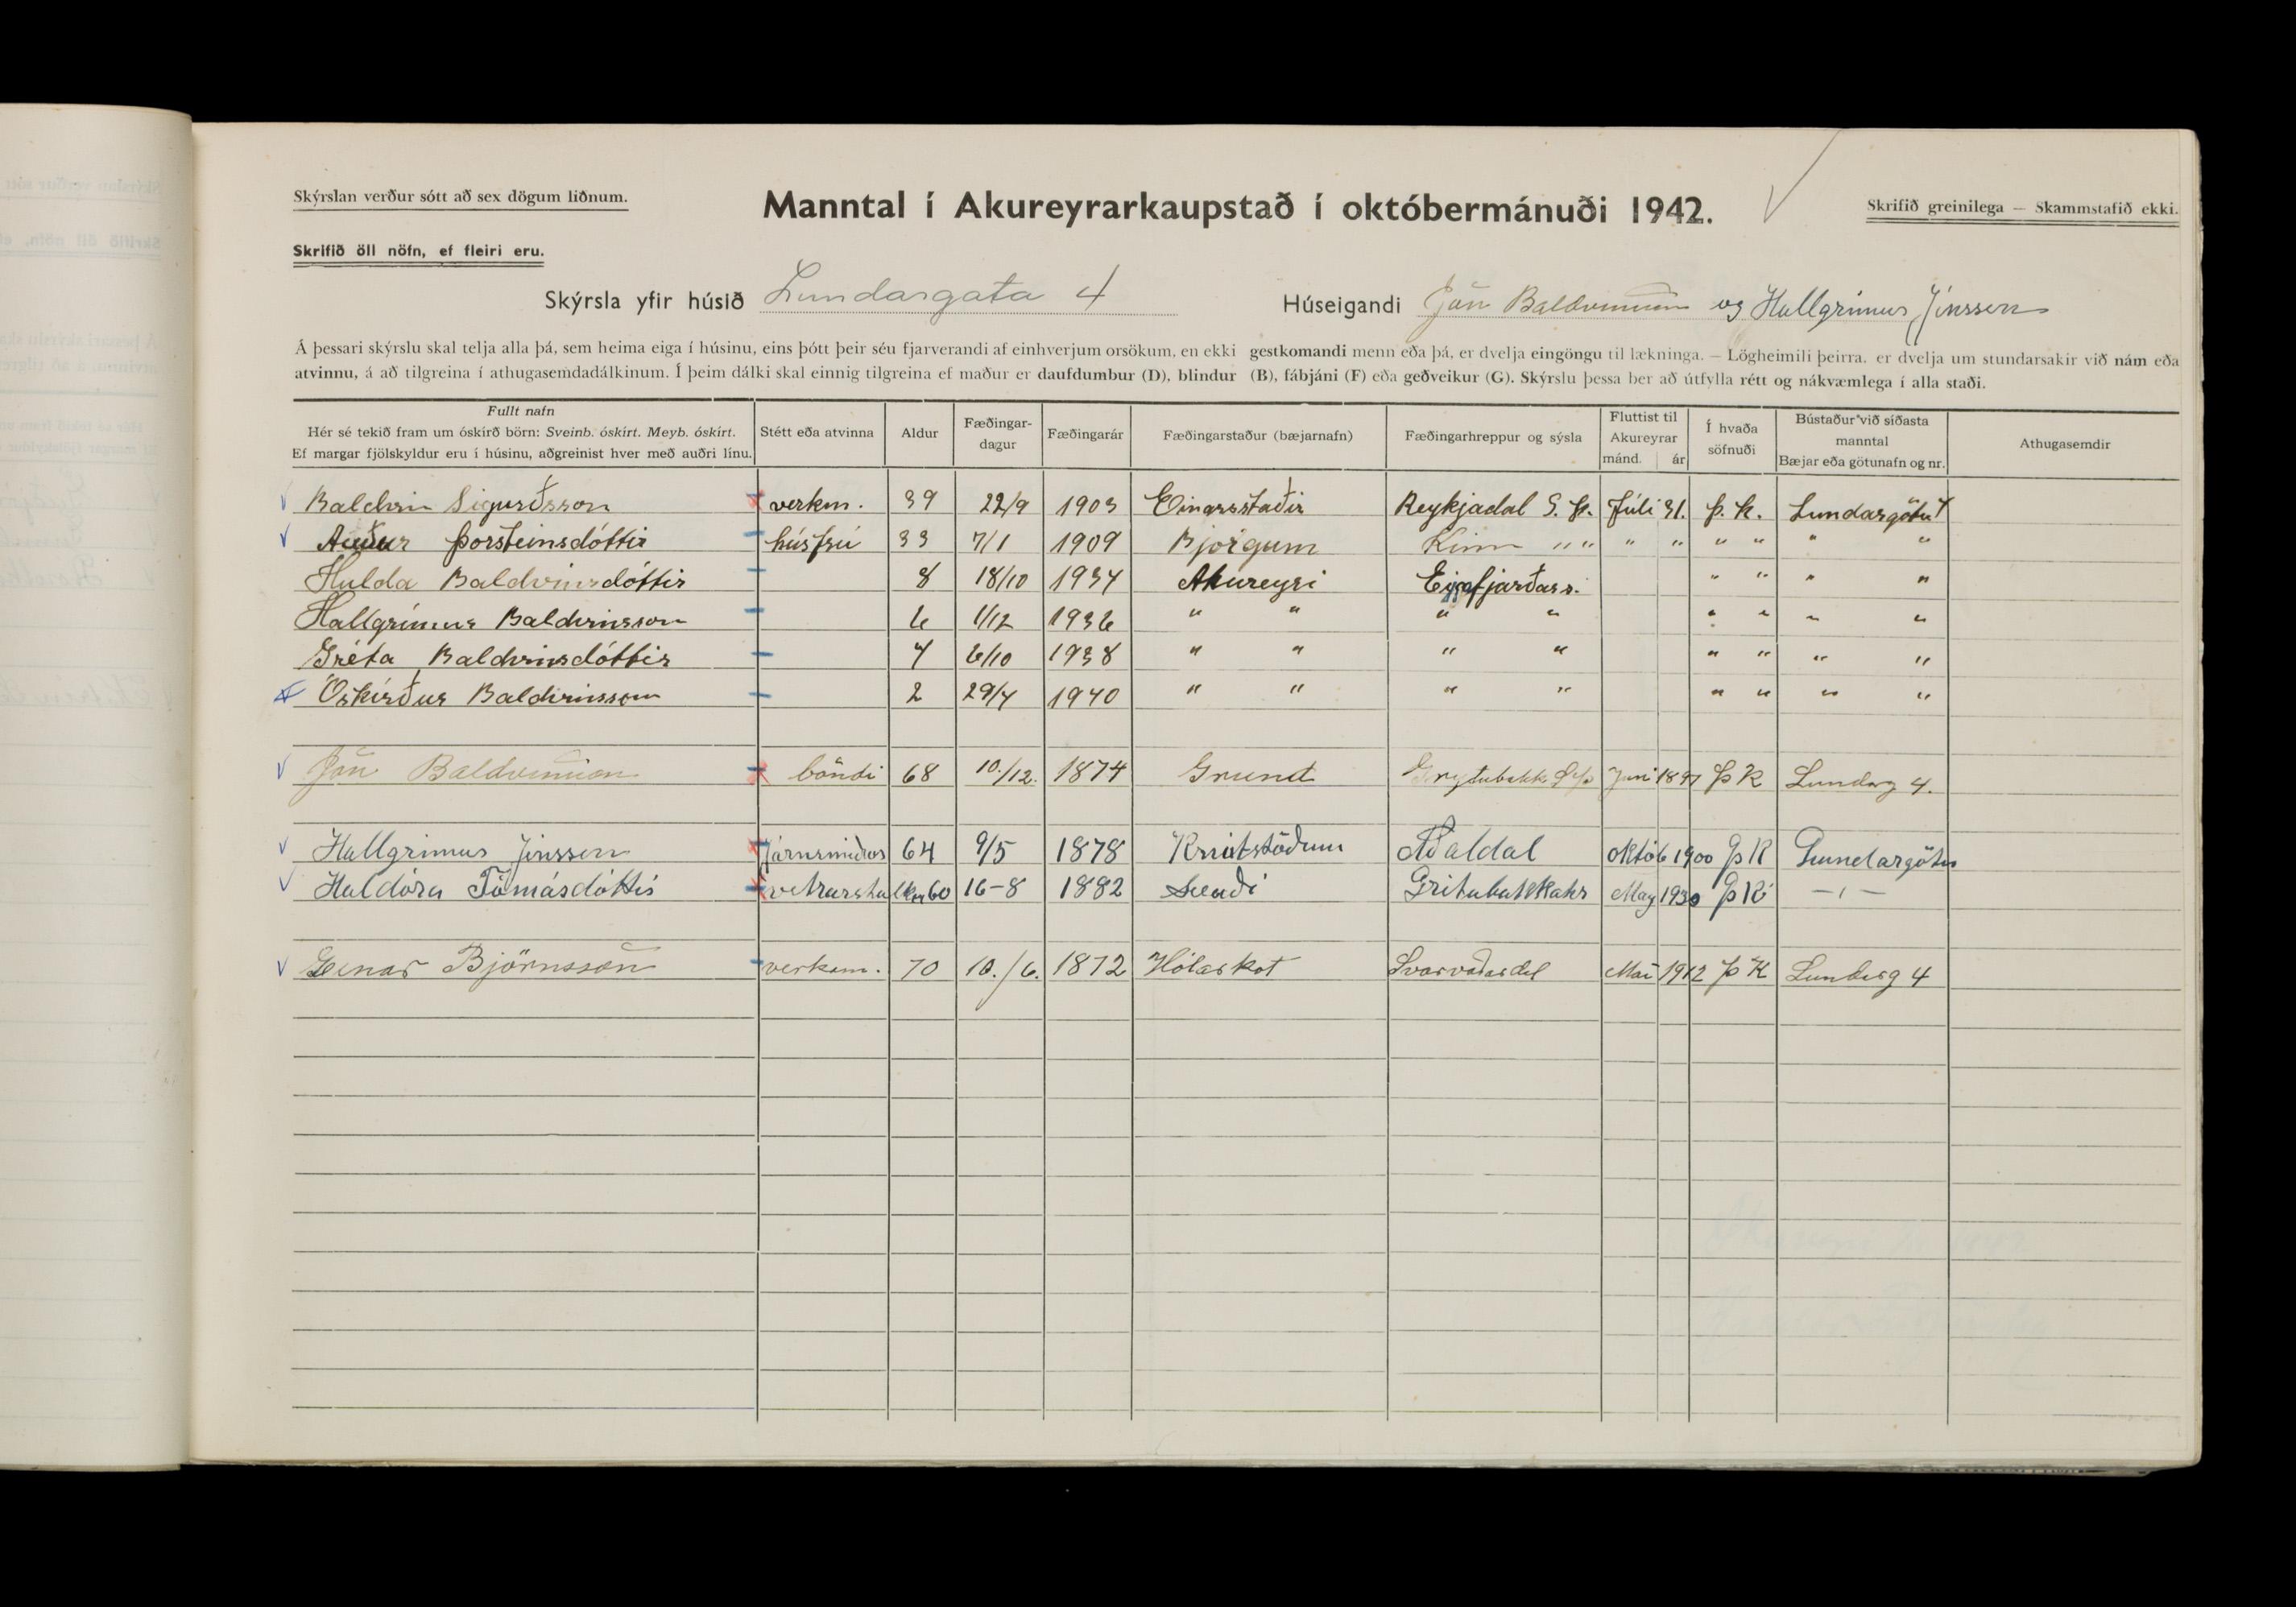 Skýrslan verður sótt að sex dögum liðnum.
Manntal í Akureyrarkaupstað í októbermánuði 1942.
Skrifið greinilega — Skammstafið ekki.
Skrifið öll nöfn, ef fleiri eru.
Skýrsla yfir húsið Lundargata 4
Húseigandi Jón Baldvinsson og Hallgrímur Jónsson
Á þessari skýrslu skal telja alla þá, sem heima eiga í húsinu, eins þótt þeir séu fjarverandi af einhverjum orsökum, en ekki gestkomandi menn eða þá, er dvelja eingöngu til lækninga. — Lögheimili þeirra, er dvelja um stundarsakir við nám eða
atvinnu, á að tilgreina í athugasemdadálkinum. Í þeim dálki skal einnig tilgreina ef maður er daufdumbur (D), blindur (B), fábjáni (F) eða geðveikur (G). Skýrslu þessa ber að útfylla rétt og nákvæmlega í alla staði.
Fullt nafn
Hér sé tekið fram um óskírð börn: Sveinb. óskírt. Meyb. óskírt.
Ef margar fjölskyldur eru í húsinu, aðgreinist hver með auðri línu.
Stétt eða atvinna
Aldur
Fæðingar-
dagur
Fæðingarár
Fæðingarstaður (bæjarnafn)
Fæðingarhreppur og sýsla
Fluttist til
Akureyrar
mánd. ár
Í hvaða
söfnuði
Bústaður við síðasta
manntal
Bæjar eða götunafn og nr.
Athugasemdir
Baldvin Sigurðsson verkm. 39 22/9 1903 Einarsstaðir Reykjadal S. Þ. Júli 31. Þ. K. Lundargötu 4
Auður Þorsteinsdóttir húsfrú 33 7/1 1909 Björgum Kinn " " " " " " " "
Hulda Baldvinsdóttir 8 18/10 1934 Akureyri Eyjafjarðars. " " " "
Hallgrímur Baldvinsson 6 1/12 1936 " " " " " " " "
Gréta Baldvinsdóttir 4 6/10 1938 " " " " " " " "
Óskírður Baldvinsson 2 29/4 1940 " " " " " " " "
Jón Baldvinsson bóndi 68 10/12. 1874 Grund Grýtubakk. Júní 1897 Þ K Lundarg 4.
Hallgrímur Jónsson Járnsmiður 64 9/5 1878 Knútstöðum Aðaldal Októb 1900 Þ K Lundargötu
Haldóra Tómásdóttir 60 16-8 1882 May 1930 Þ K —"—
Einar Björnsson verkam. 70 10./6. 1872 Hólarkot Svarvaðardal Maí 1912 Þ K Lundarg 4